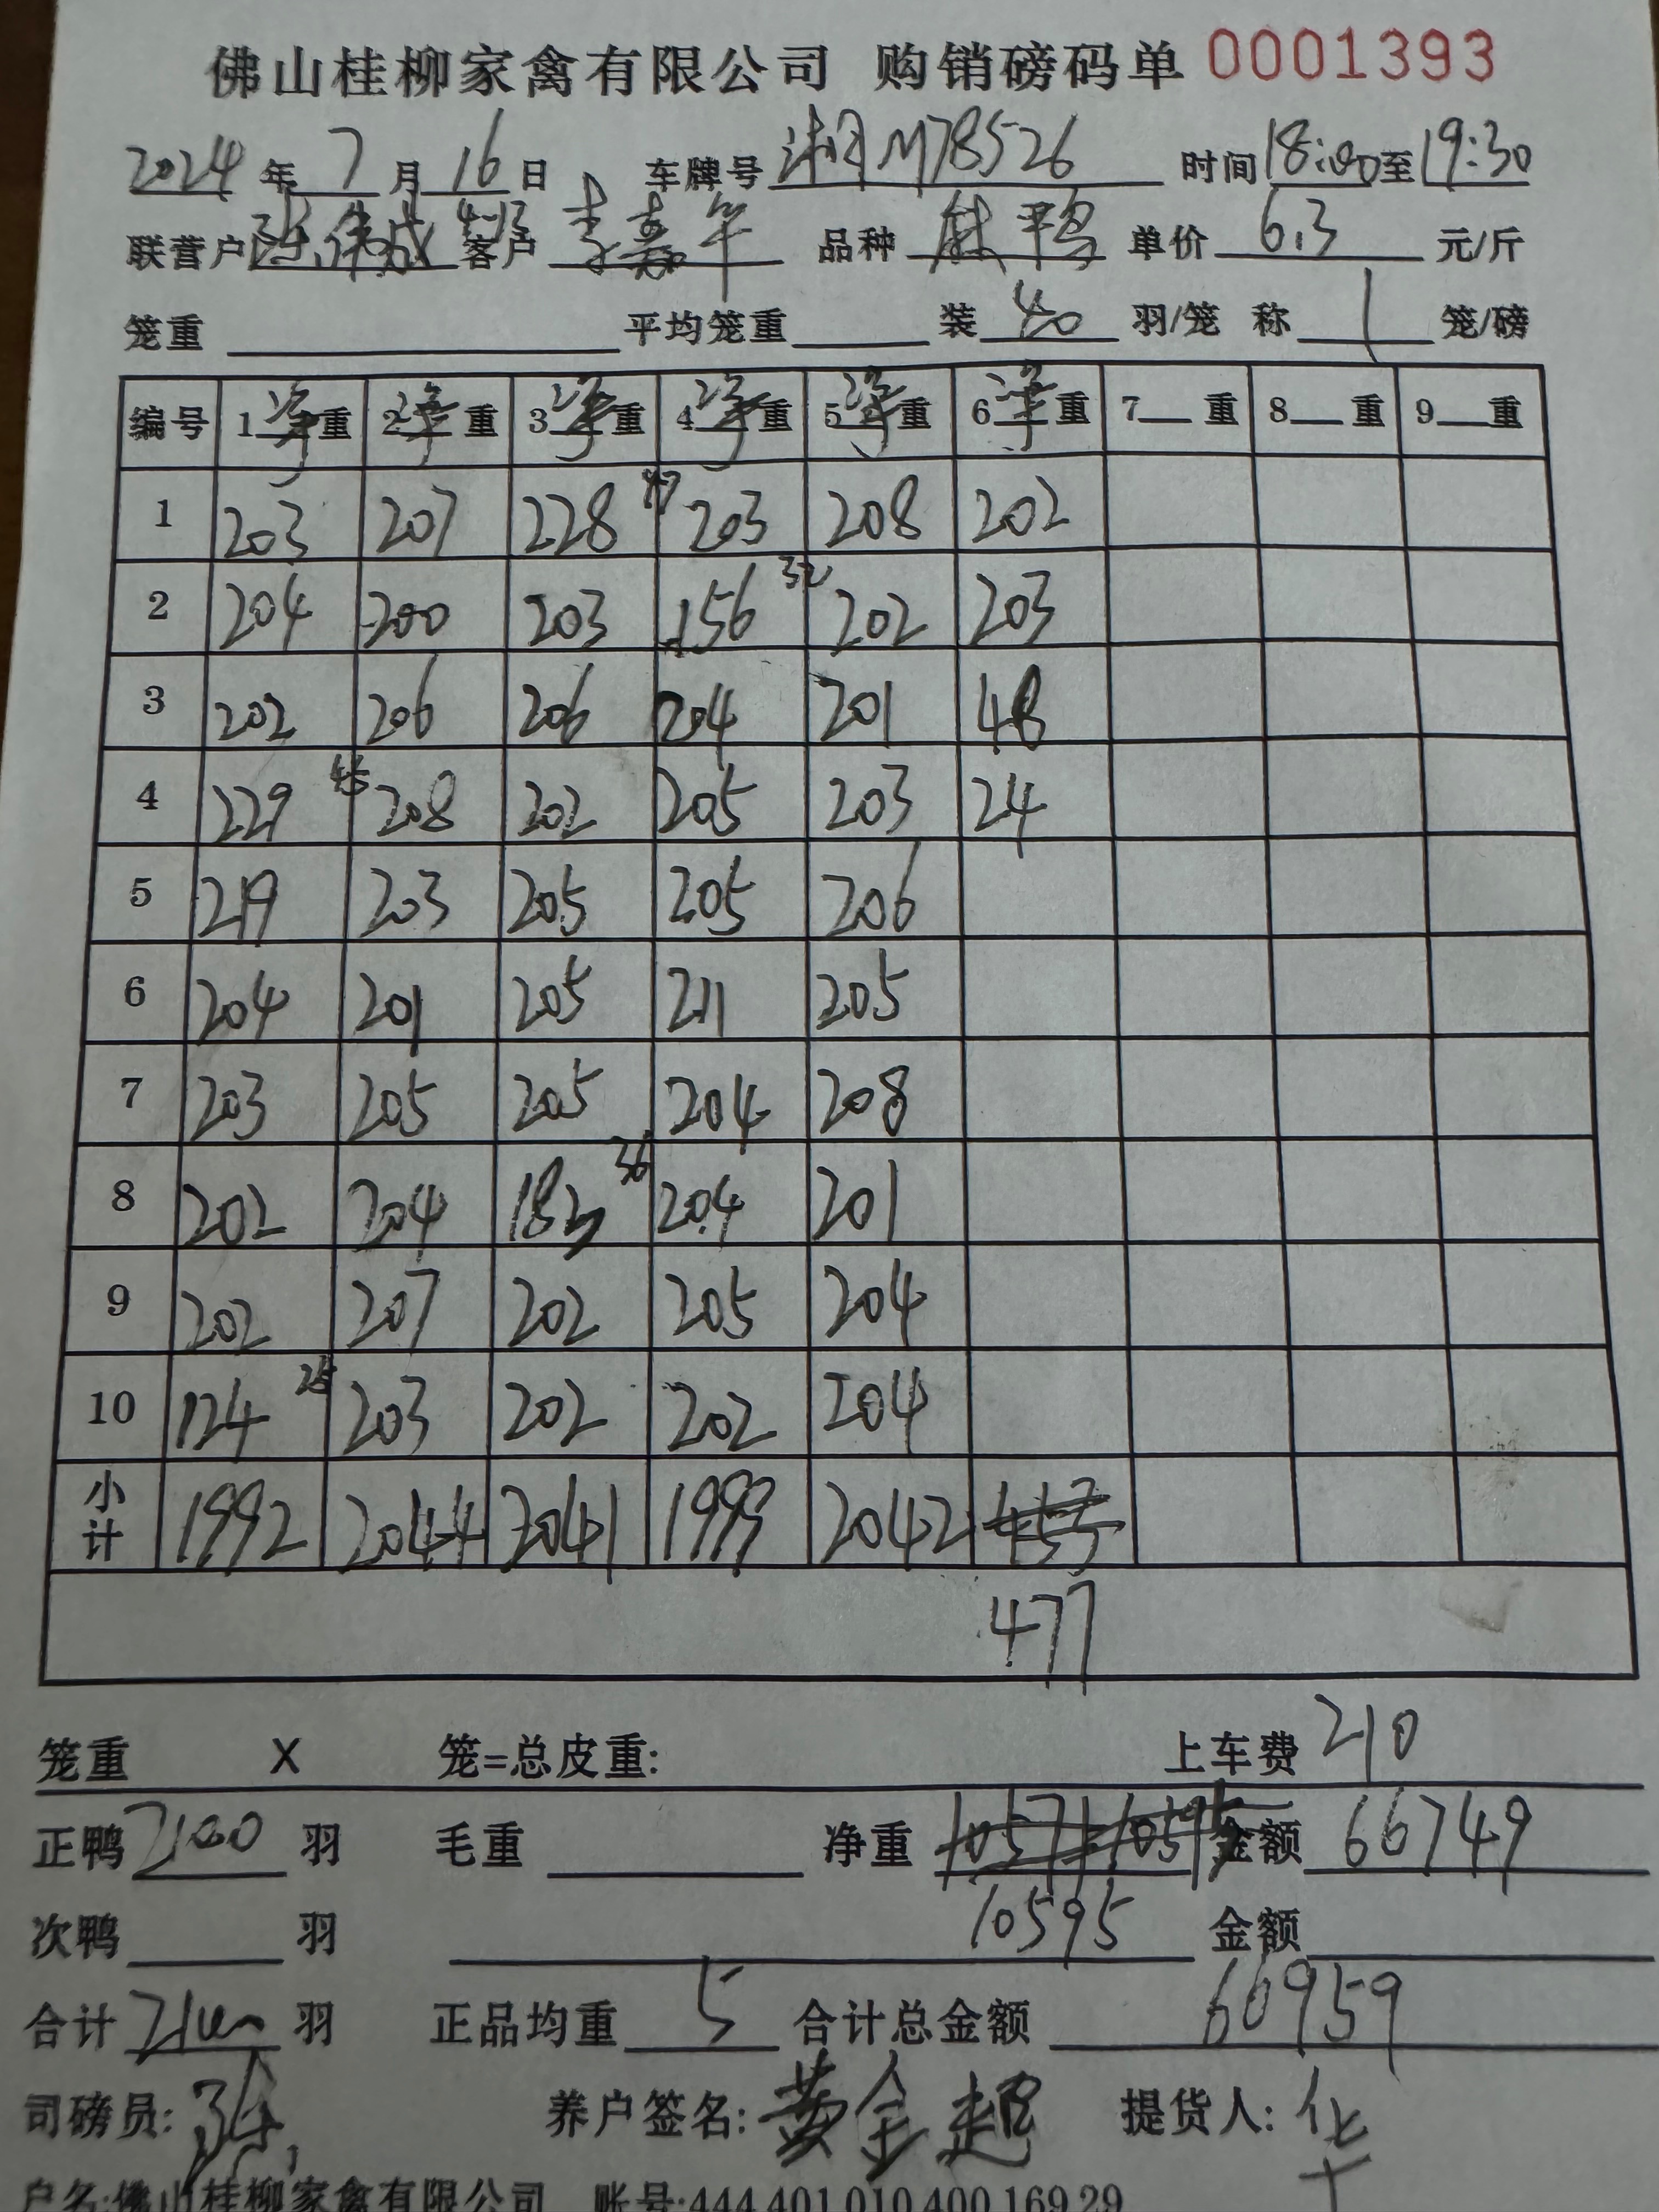 佛山桂柳家禽有限公司 购销磅码单 0001393
2024年7月16日 车牌号 湘M78526 时间18:00至19:30
联营户 客户 李嘉年 品种 麻鸭 单价 6.3 元/斤
笼重 平均笼重 装 40 羽/笼 称 1 笼/磅
编号 1净重 2净重 3净重 4净重 5净重 6净重 7 重 8 重 9 重
1 203 207 228 47 203 208 202
2 204 200 203 156 32 202 203
3 202 206 206 204 201 48
4 229 45 208 202 205 203 24
5 219 203 205 205 206
6 204 201 205 211 205
7 203 205 205 204 208
8 202 204 183 36 204 201
9 202 207 202 205 204
10 124 25 203 202 202 204
小计 1992 2044 2041 1999 2042 453
477
笼重 X 笼=总皮重: 上车费 210
正鸭 2100 羽 毛重 净重 10571 10595 金额 66749
次鸭 羽 10595 金额
合计 2100 羽 正品均重 5 合计总金额 66959
司磅员: 养户签名: 黄金超 提货人: 华
户名:佛山桂柳家禽有限公司 账号:444 401 010 400 169 29